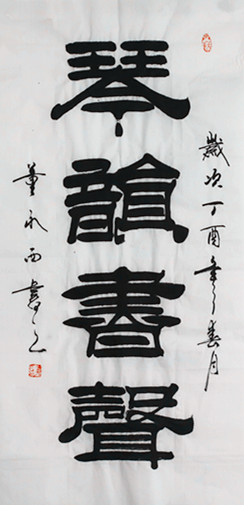 歲次丁酉年春月
琴韻書聲
董永西書